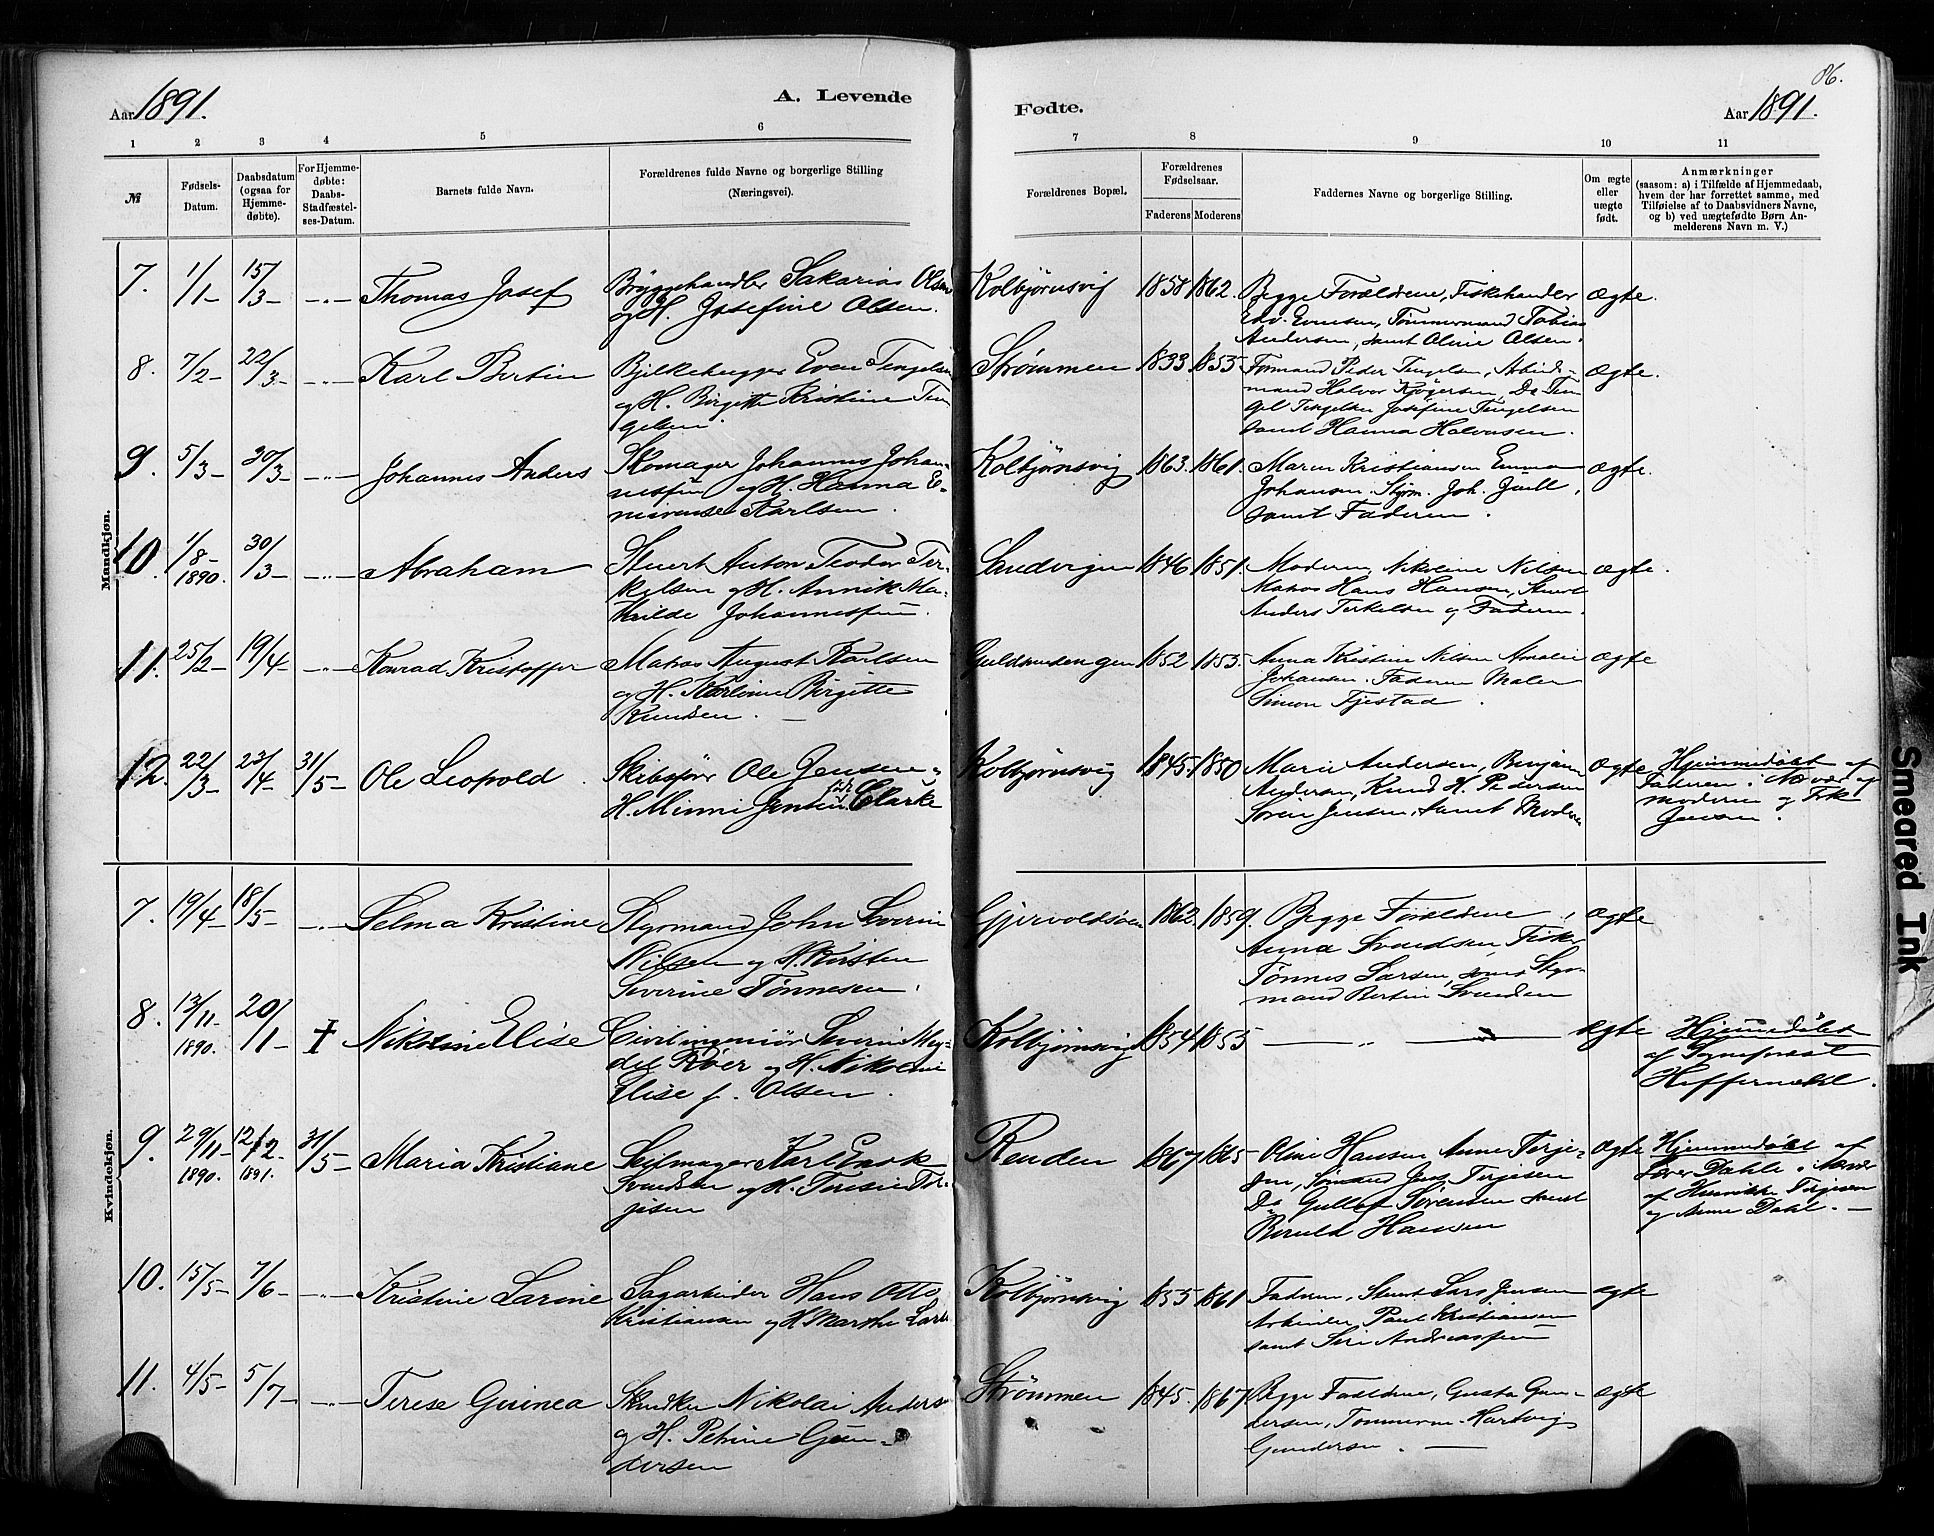 86.
Aar 1891.
A. Levende
Fødte.
Aar 1891.
1 2 3 4 5 6 7 8 9 10 11
№
Fødsels-
Datum.
Daabsdatum
(ogsaa for
Hjemme-
døbte).
For Hjemme-
døbte:
Daabs-
Stadfæstel-
ses-Datum.
Barnets fulde Navn.
Forældrenes fulde Navne og borgerlige Stilling
(Næringsvei).
Forældrenes Bopæl.
Forældrenes
Fødselsaar.
Faderens Moderens
Faddernes Navne og borgerlige Stilling.
Om ægte
eller
uægte
født.
Anmærkninger
(saasom: a) i Tilfælde af Hjemmedaab,
hvem der har forrettet samme, med
Tilføielse af to Daabsvidners Navne,
og b) ved uægtefødte Børn An-
melderens Navn m. V.)
Mandkjøn.
7. 1/1- 15/3- -"- Thomas Josef
Bryggehandler Sakarias Olsen
og H. Josefine Olsen.
Kolbjørnsvig 1858 1862.
Begge Forældrene, Fiskehandler
Edv. Evensen, Tømmermand Tobias
Andersen, samt Oline Olsen.
Ægte.
8. 7/2- 22/3- -"- Karl Bertin
Bjelkehugger Even Tengelsen
og H. Birgitte Kristine Ten
gelsen.
Strømmen 1833. 1853
Formand Peder Tengelsen, Arbeids-
mand Halvor Kjøgersen, Do Ten
gel Tengelsen Josefine Tengelsen
samt Hanna Halvorsen.
Ægte.
9. 5/3- 30/3- -"- Johannes Anders
Skomager Johannes Johan-
nessen og H. Hanna E-
merense Karlsen.
Kolbjørnsvig 1863. 1861.
Maren Kristiansen Emma
Johansen. Styrm. Joh. Juell,
samt Faderen.
Ægte.
10. 1/8- 1890. 30/3- -"- Abraham
Stuert Anton Teodor Ter-
kelsen og H. Annik Ma-
thilde Johannessen.
Sandvigen 1846 1851.
Moderen, Nikoline Nilsen
Matros Hans Hansen, Stuert
Anders Terkelsen og Faderen.
Ægte.
11. 25/2- 19/4- -"- Konrad Kristoffer
Matros August Karlsen
og H. Karline Birgitte
Knudsen. —
Guldsmedengen 1852 1853.
Anna Kristine Nilsen Amalie
Johansen. Faderen Maler
Simon Fjestad.
Ægte
12. 22/3- 23/4- 31/5- Ole Leopold.
Skibsfører Ole Jensen og
H. Minni Jensen Clarke
Kolbjørnsvig 1845. 1850.
Marie Andersen, Benjam
Andersen, Knud H. Pedersen
Søren Jensen, samt Moderen
Ægte
Hjemmedøbt af
Faderen i Nærvær af
moderen og
Jensen.
Kvindekjøn.
7. 19/4- 18/5- -"- Selma Kristine
Styrmand John Severin
Nilsen og H. Kirsten
Severine Tønnesen.
Gjervoldsøen 1862. 1859.
Begge Forældrene,
Anna Svendsen Fisk.
Tønnes Larsen, samt Styr-
mand Bertin Svendsen
Ægte
8. 13/11- 1890. 20/1- + Nikoline Elise
Civilingeniør Severin
Røer og H. Nikoline
Elise f. Olsen.
Kolbjørnsvig 1854 1855
— " —
Ægte
Hjemmedøbt
af Sognepræst
Heffermehl.
9. 29/11- 1890. 12/2- 1891. 31/5- Maria Kristiane
Seilmager Karl Enok
Svendsen og H. Teresie Ter-
jesen
Renden 1867 1865
Oline Hansen Anne Terje-
sen, Sømand Jens Terjesen
Do Gullof Sørensen samt
Beruld Hansen
Ægte
Hjemmedøbt af
Lærer Dahle i Nærvær
af Henrikke Terjesen
og Anne Dahl. —
10. 15/5- 7/6- -"- Kristine Larine
Sagarbeider Hans Otto
Kristiansen og H. Marthe Lars
Kolbjørnsvig 1855 1861
Faderen, Stuert Lars Jensen
Arbeider, Paul Kristiansen
samt Siri Andreassen
Ægte
11. 4/5- 5/7- -"- Terese Guinea
Snedker Nikolai Anders
og H. Petrine Gun-
dersen
Strømmen 1845. 1867
Begge Forældrene, Gusta Gun-
dersen, Tømmerm. Hartvig
Gundersen. —
Ægte
Smeared Ink